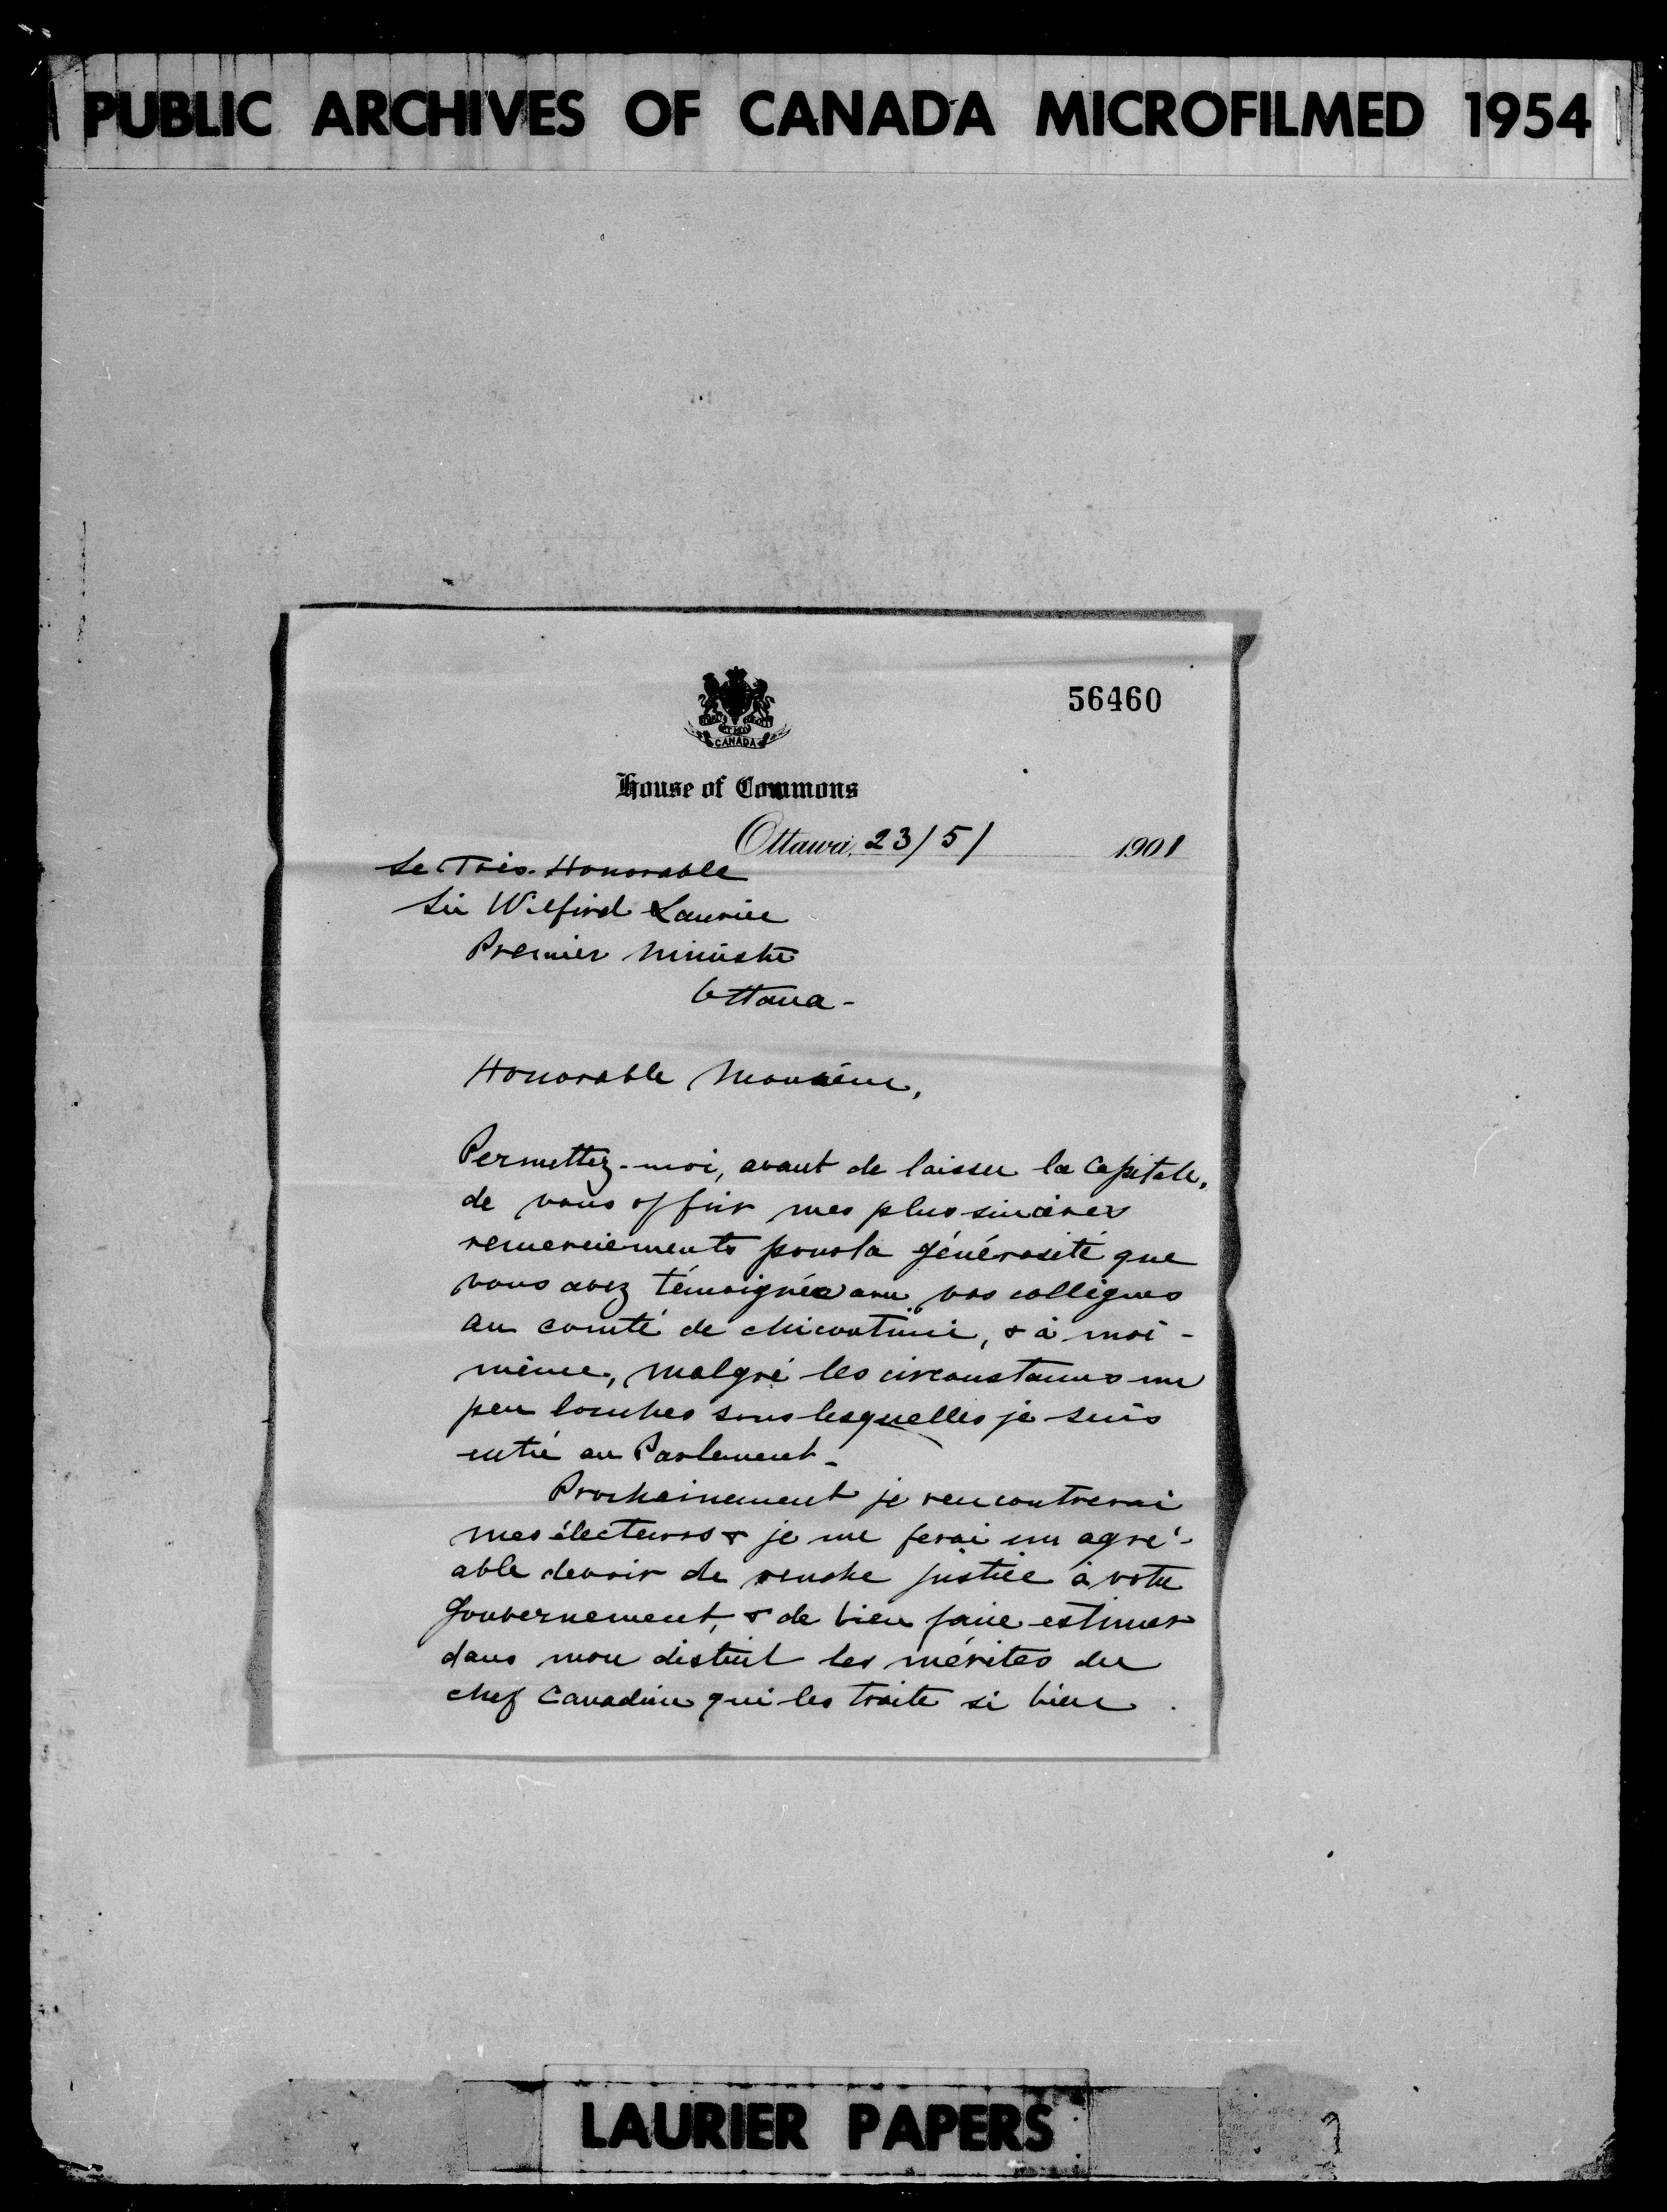 PUBLIC ARCHIVES OF CANADA MICROFILMED 1954
56460
CANADA
House of Commons
Ottawa, 23/5/ 1901
Le Très-Honorable
Sir Wilfird Laurier
Premier Ministre
Ottawa-
Honorable Monsieur,
Permettez-moi, avant de laisser la Capitale,
de vous offrir mes plus sincères
remerciements pour la générosité que
vous avez témoignée avec vos collègues
au comté de Chicoutimi, & à moi-
même, malgré les circonstances un
peu louches sous lesquelles je suis
entré au Parlement-
Prochainement je rencontrerai
mes électeurs & je me ferai un agré-
able devoir de rendre justice à votre
Gouvernement, & de bien faire estimer
dans mon district les mérites du
chef Canadien qui les traite si bien.
LAURIER PAPERS